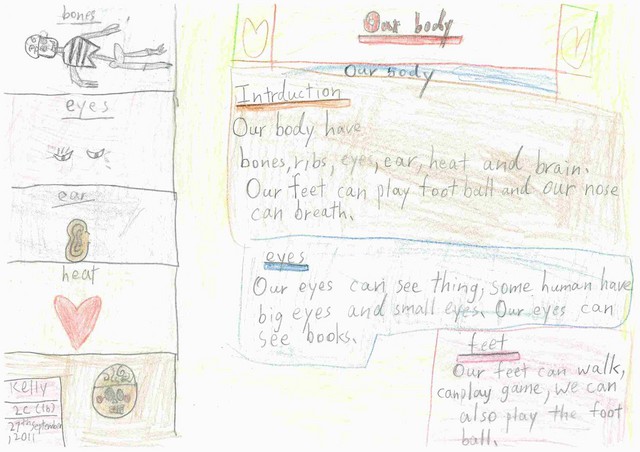 bones
eyes
ear
heat
Kelly
2C (16)
29th September
, 2011
Our body
Our body
Intrduction
Our body have
bones, ribs, eyes, ear, heat and brain.
Our feet can play foot ball and our nose
can breath.
eyes
Our eyes can see thing, some human have
big eyes and small eyes. Our eyes can
see books.
feet
Our feet can walk,
canplay game, we can
also play the foot
ball.